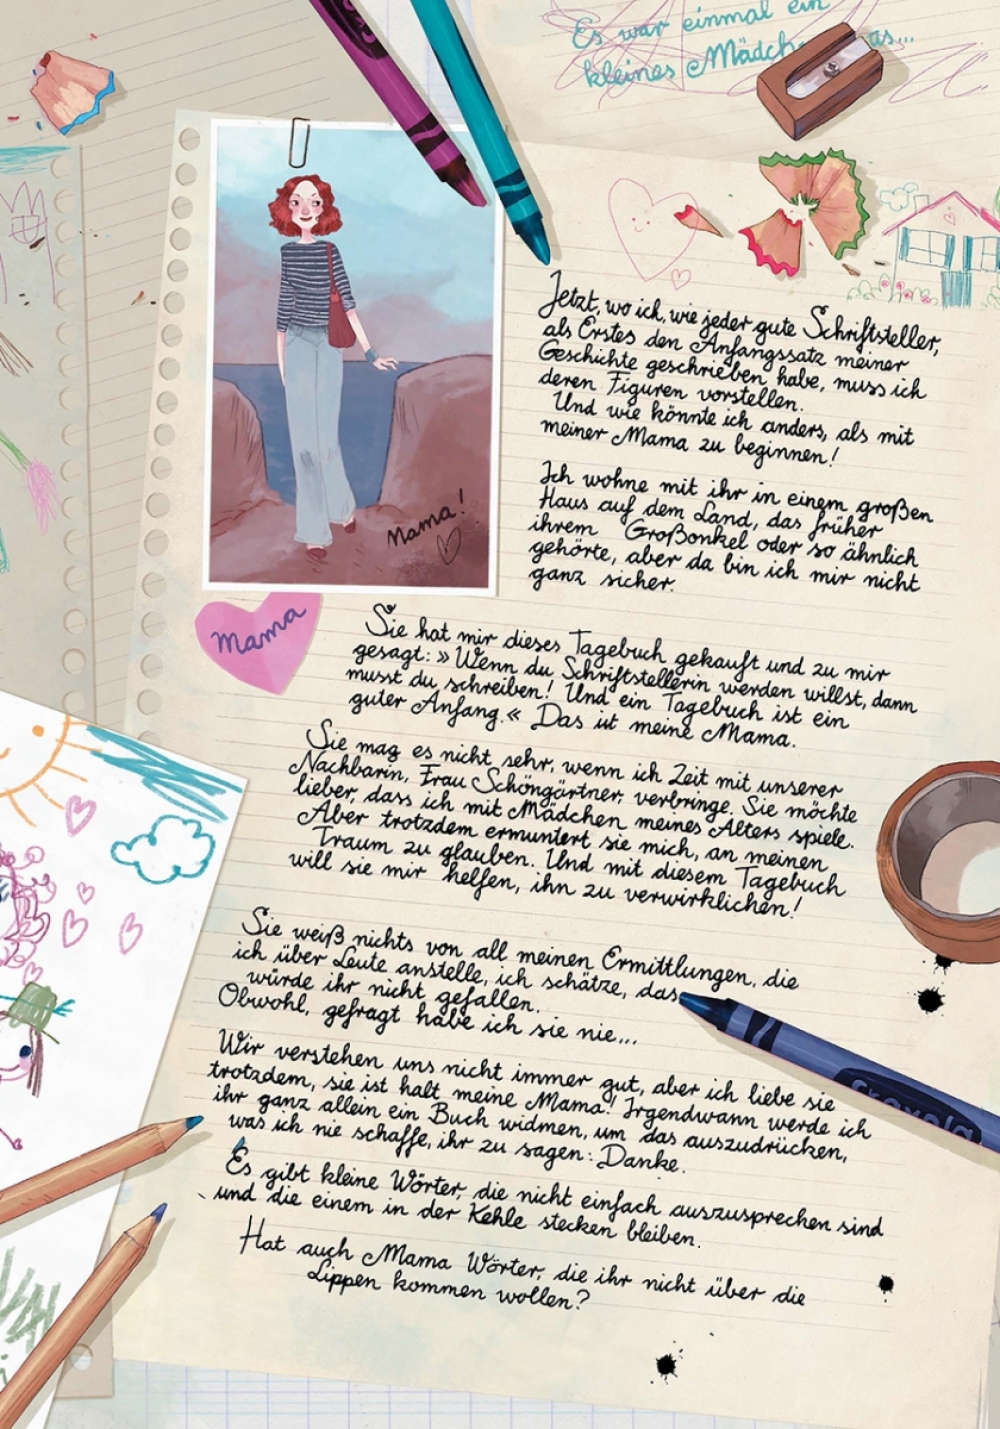 Es war einmal ein
kleines Mädch as...
Mama!
Mama
Jetzt, wo ich, wie jeder gute Schriftsteller,
als Erstes den Anfangssatz meiner
Geschichte geschrieben habe, muss ich
deren Figuren vorstellen.
Und wie könnte ich anders, als mit
meiner Mama zu beginnen!
Ich wohne mit ihr in einem großen
Haus auf dem Land, das früher
ihrem Großonkel oder so ähnlich
gehörte, aber da bin ich mir nicht
ganz sicher.
Sie hat mir dieses Tagebuch gekauft und zu mir
gesagt: »Wenn du Schriftstellerin werden willst, dann
musst du schreiben! Und ein Tagebuch ist ein
guter Anfang.« Das ist meine Mama.
Sie mag es nicht sehr, wenn ich Zeit mit unserer
Nachbarin, Frau Schöngärtner, verbringe. Sie möchte
lieber, dass ich mit Mädchen meines Alters spiele.
Aber trotzdem ermuntert sie mich, an meinen
Traum zu glauben. Und mit diesem Tagebuch
will sie mir helfen, ihn zu verwirklichen!
Sie weiß nichts von all meinen Ermittlungen, die
ich über Leute anstelle, ich schätze, das
würde ihr nicht gefallen.
Obwohl, gefragt habe ich sie nie...
Wir verstehen uns nicht immer gut, aber ich liebe sie
trotzdem, sie ist halt meine Mama! Irgendwann werde ich
ihr ganz allein ein Buch widmen, um das auszudrücken,
was ich nie schaffe, ihr zu sagen: Danke.
Es gibt kleine Wörter, die nicht einfach auszusprechen sind
und die einem in der Kehle stecken bleiben.
Hat auch Mama Wörter, die ihr nicht über die
Lippen kommen wollen?